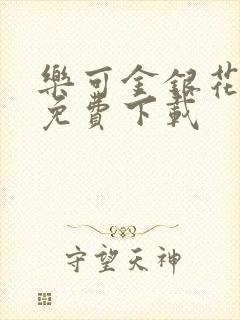 樂可金銀花
免費下載
守望天神